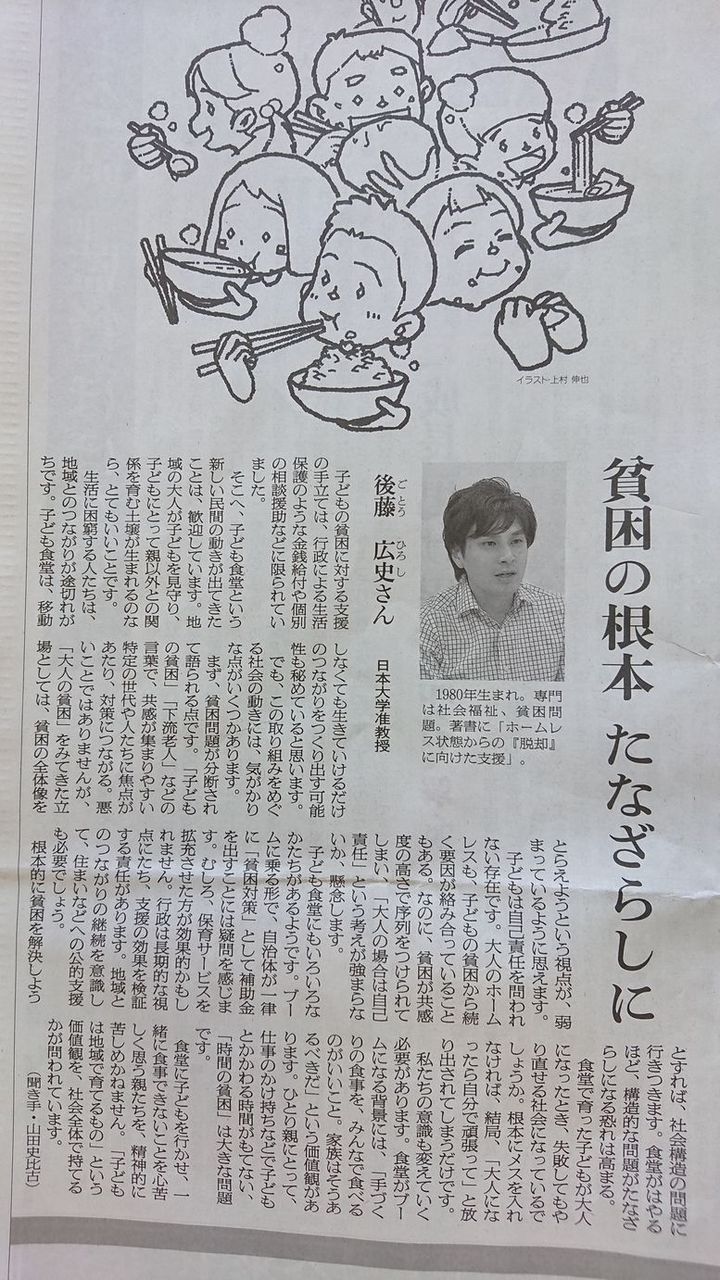 イラスト・上村 伸也
貧困の根本 たなざらしに
1980年生まれ。専門
は社会福祉、貧困問
題。著書に「ホームレ
ス状態からの『脱却』
に向けた支援」。
後藤 広史さん
ごとう ひろし
日本大学准教授
子どもの貧困に対する支援
の手立ては、行政による生活
保護のような金銭給付や個別
の相談援助などに限られてい
ました。
そこへ、子ども食堂という
新しい民間の動きが出てきた
ことは、歓迎しています。地
域の大人が子どもを見守り、
子どもにとって親以外との関
係を育む土壌が生まれるのな
ら、とてもいいことです。
生活に困窮する人たちは、
地域とのつながりが途切れが
ちです。子ども食堂は、移動
しなくても生きていけるだけ
のつながりをつくり出す可能
性も秘めていると思います。
でも、この取り組みをめぐ
る社会の動きには、気がかり
な点がいくつかあります。
まず、貧困問題が分断され
て語られる点です。「子ども
の貧困」「下流老人」などの
言葉で、共感が集まりやすい
特定の世代や人たちに焦点が
あたり、対策につながる。悪
いことではありませんが、
「大人の貧困」をみてきた立
場としては、貧困の全体像を
とらえようという視点が、弱
まっているように思えます。
子どもは自己責任を問われ
ない存在です。大人のホーム
レスも、子どもの貧困から続
く要因が絡み合っていること
もある。なのに、貧困が共感
度の高さで序列をつけられて
しまい、「大人の場合は自己
責任」という考えが強まらな
いか、懸念します。
子ども食堂にもいろいろな
かたちがあるようです。ブー
ムに乗る形で、自治体が一律
に「貧困対策」として補助金
を出すことには疑問を感じま
す。むしろ、保育サービスを
拡充させた方が効果的かもし
れません。行政は長期的な視
点にたち、支援の効果を検証
する責任があります。地域と
のつながりの継続を意識し
て、住まいなどへの公的支援
も必要でしょう。
根本的に貧困を解決しよう
とすれば、社会構造の問題に
行きつきます。食堂がはやる
ほど、構造的な問題がたなざ
らしになる恐れは高まる。
食堂で育った子どもが大人
になったとき、失敗してもや
り直せる社会になっているで
しょうか。根本にメスを入れ
なければ、結局、「大人にな
ったら自分で頑張って」と放
り出されてしまうだけです。
私たちの意識も変えていく
必要があります。食堂がブー
ムになる背景には、「手づく
りの食事を、みんなで食べる
のがいいこと。家族はそうあ
るべきだ」という価値観があ
ります。ひとり親にとって、
仕事のかけ持ちなどで子ども
とかかわる時間がもてない、
「時間の貧困」は大きな問題
です。
食堂に子どもを行かせ、一
緒に食事できないことを心苦
しく思う親たちを、精神的に
苦しめかねません。「子ども
は地域で育てるもの」という
価値観を、社会全体で持てる
かが問われています。
（聞き手・山田史比古）